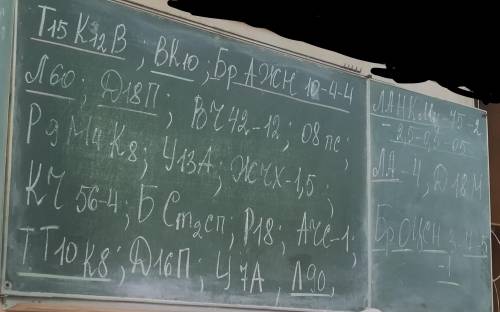 Т15К12В; ВК10; Бр АЖН 10-4-4
Л60; Д18П; ВЧ 42-12; 08 пс;
Р9М4К8; У13А; ЖЧХ-1,5;
КЧ 56-4; БСт2сп; Р18; АЧС-1;
ТТ10К8; Д16П; У7А, Л90,
ЛАНКМц 75-2
-2,5-0,5-0,5
ЛА-4, Д18М
Бр ОЦСН 3-4-5
-1